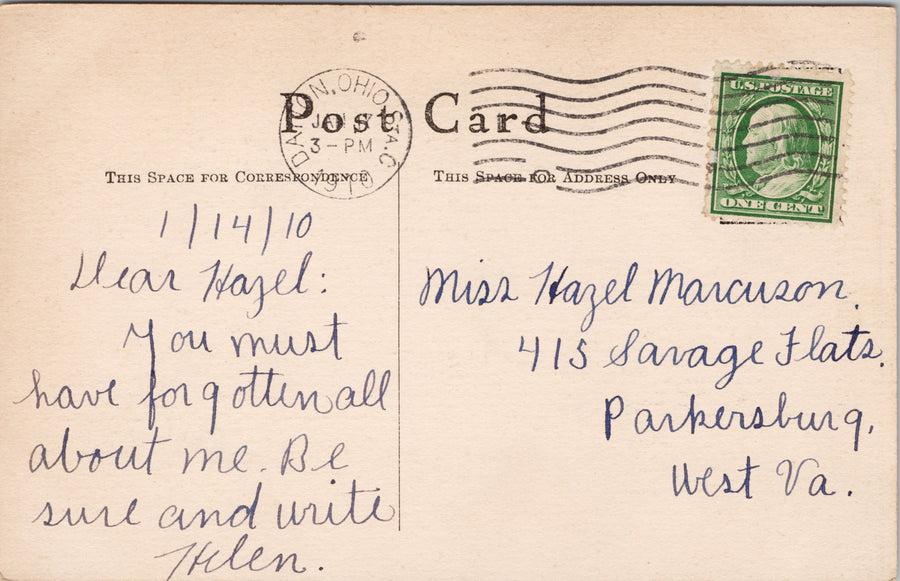 Post Card
DAYTON, OHIO. STA. C
JAN 17
3-PM
1910
U.S. POSTAGE
ONE CENT
THIS SPACE FOR CORRESPONDENCE
THIS SPACE FOR ADDRESS ONLY
1/14/10
Dear Hazel:
You must
have forgotten all
about me. Be
sure and write
Helen.
Miss Hazel Marcuson.
415 Savage Flats.
Parkersburg,
West Va.